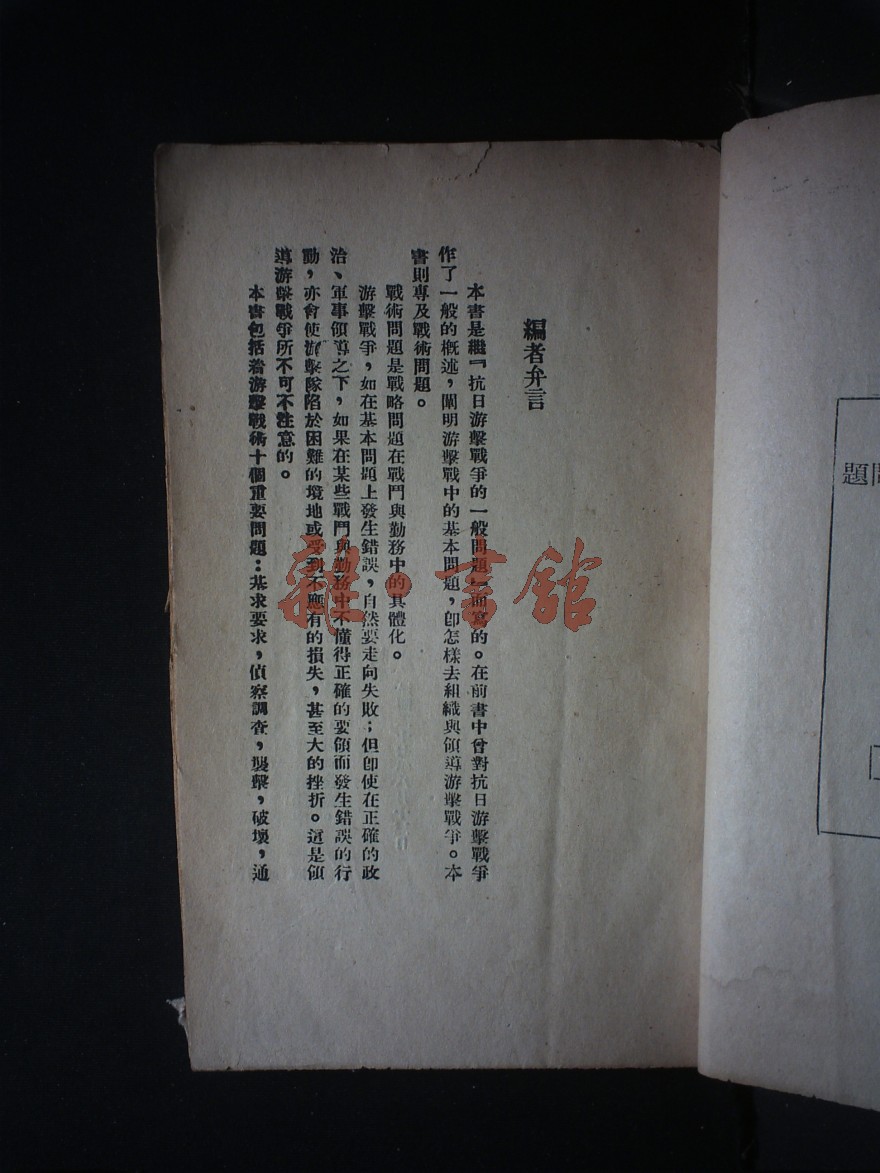 編者弁言
本書是繼『抗日游擊戰爭的一般問題』而寫的。在前書中曾對抗日游擊戰爭
作了一般的槪述，闡明游擊戰中的基本問題，卽怎樣去組織與領導游擊戰爭。本
書則專及戰術問題。
戰術問題是戰略問題在戰鬥與勤務中的具體化。
游擊戰爭，如在基本問題上發生錯誤，自然要走向失敗；但卽使在正確的政
治、軍事領導之下，如果在某些戰鬥與勤務中不懂得正確的要領而發生錯誤的行
動，亦會使游擊隊陷於困難的境地或受到不應有的損失，甚至大的挫折。這是領
導游擊戰爭所不可不注意的。
本書包括着游擊戰術十個重要問題：基求要求，偵察調查，襲擊，破壞，通
雜·書館
題